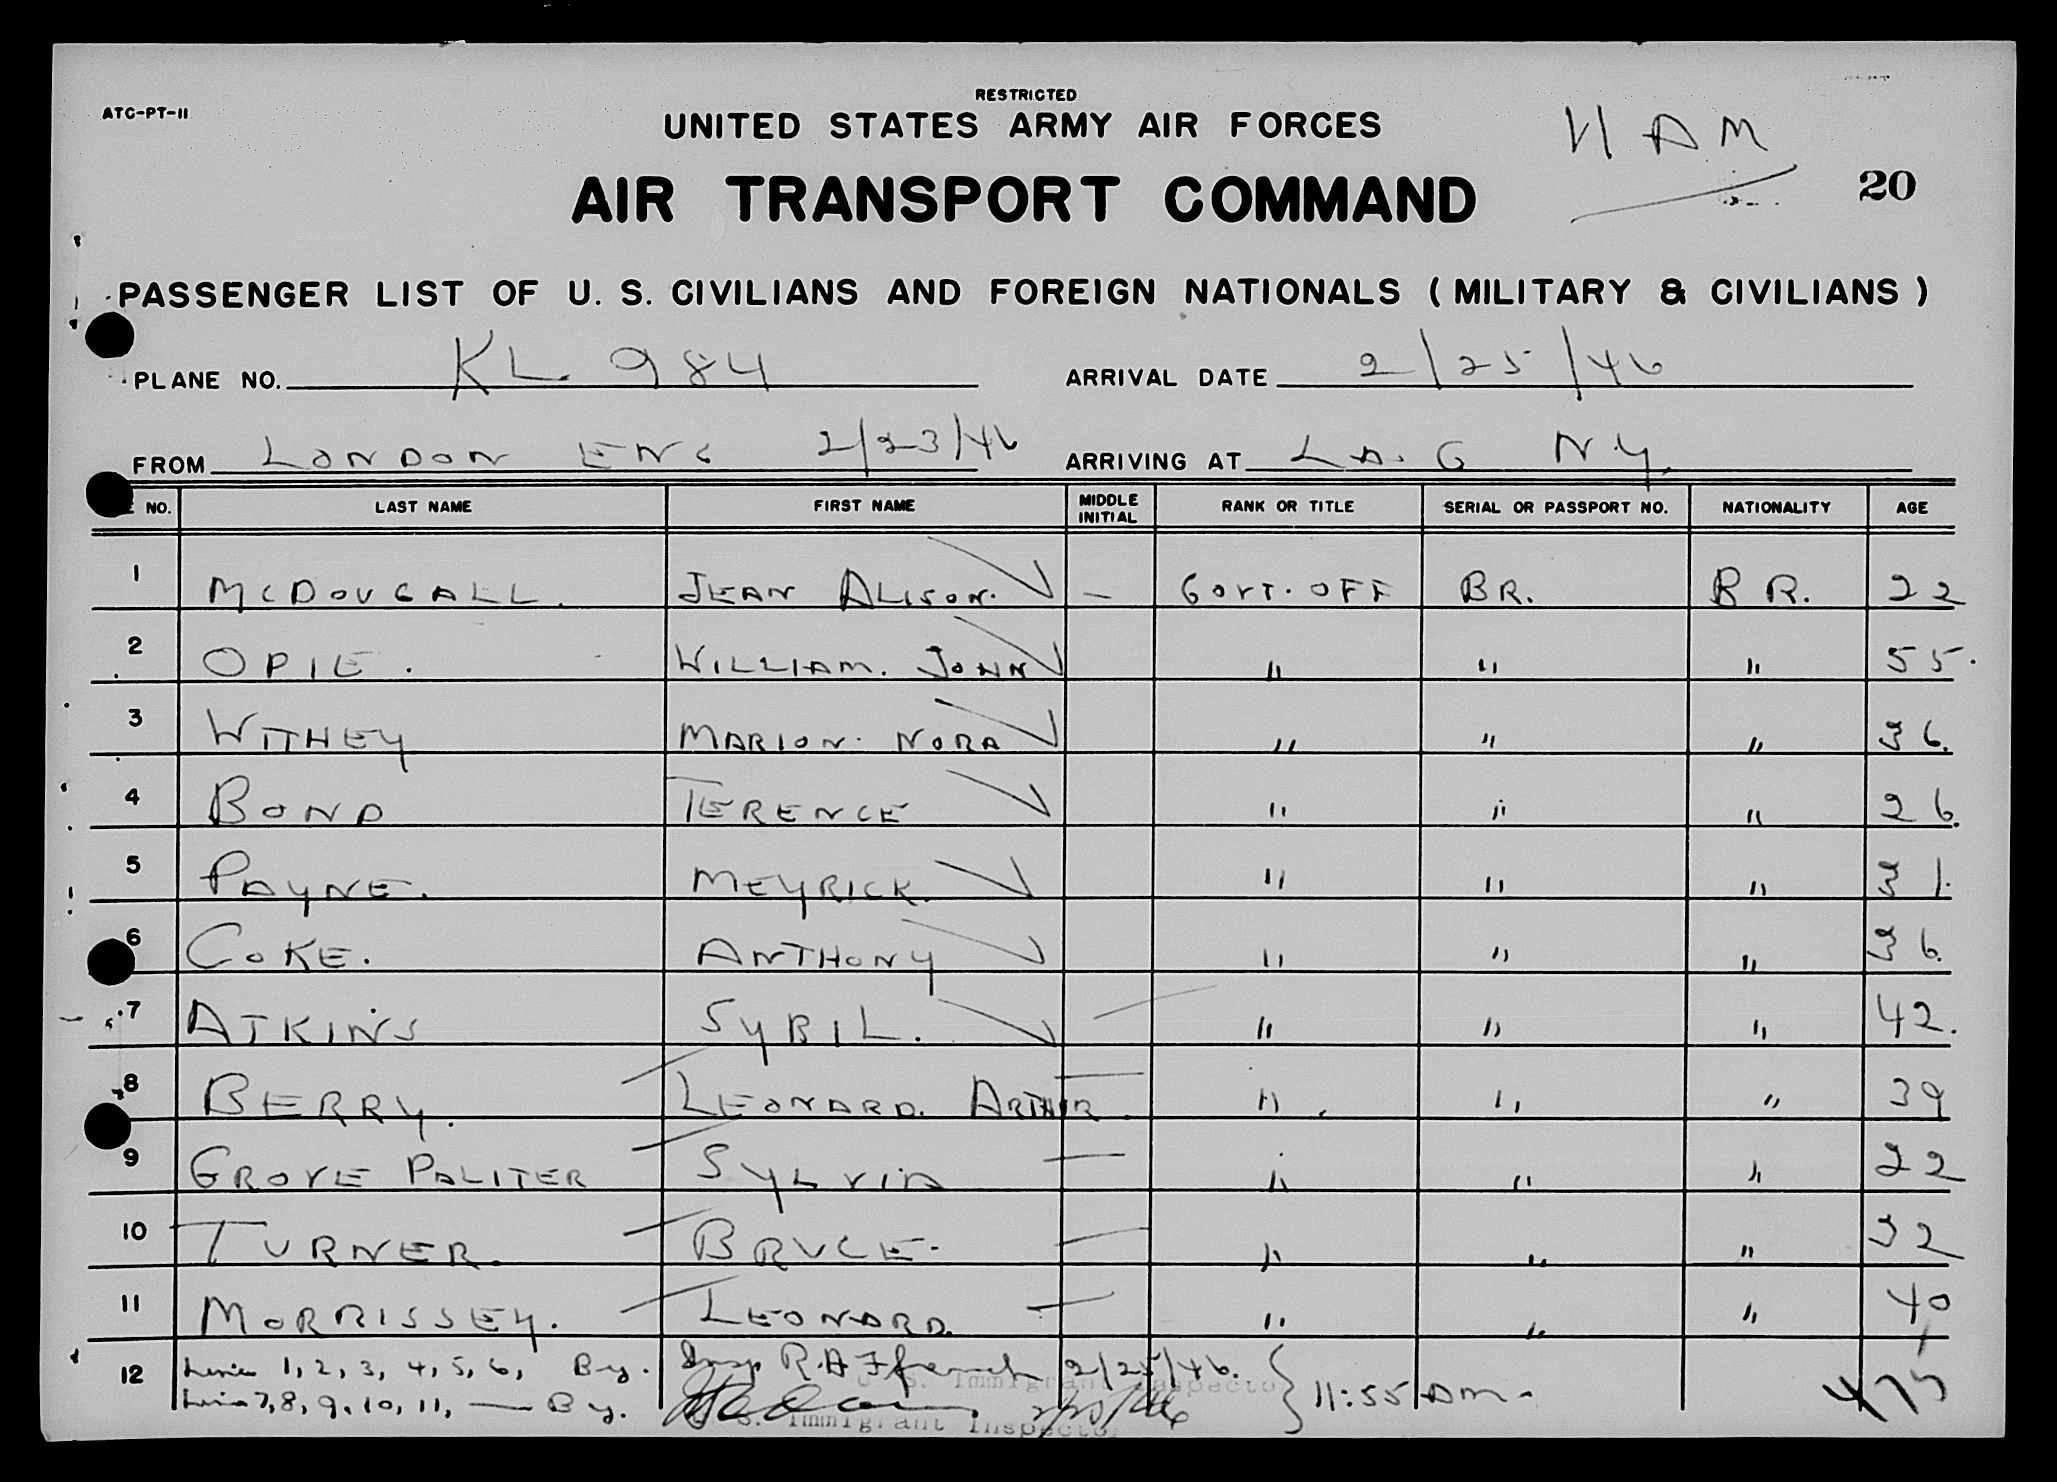 ATC-PT-11
RESTRICTED
UNITED STATES ARMY AIR FORCES
11 AM
AIR TRANSPORT COMMAND
20
PASSENGER LIST OF U. S. CIVILIANS AND FOREIGN NATIONALS ( MILITARY & CIVILIANS )
PLANE NO. KL 984 ARRIVAL DATE 2/25/46
FROM LONDON ENG 2/23/46 ARRIVING AT L.A. G N.Y.
NO. LAST NAME FIRST NAME MIDDLE INITIAL RANK OR TITLE SERIAL OR PASSPORT NO. NATIONALITY AGE
1 MCDOUGALL. JEAN ALISON. — GOVT. OFF BR. BR. 22
2 OPIE. WILLIAM. JOHN " " " 55.
3 WITHEY MARION. NORA " " " 36.
4 BOND TERENCE " " " 26.
5 PAYNE. MEYRICK. " " " 31.
6 COKE. ANTHONY " " " 36.
7 ATKINS SYBIL. " " " 42.
8 BERRY. LEONARD. ARTHUR. " " " 39
9 GROVE PALITER SYLVIA " " " 22
10 TURNER. BRUCE. " " " 32
11 MORRISSEY. LEONARD. " " " 40
12 Lines 1, 2, 3, 4, 5, 6, By. Insp R.A. 2/25/46. 11:55 AM.
U. S. Immigrant Inspector
Lines 7, 8, 9, 10, 11, — By. 2/25/46
U. S. Immigrant Inspector